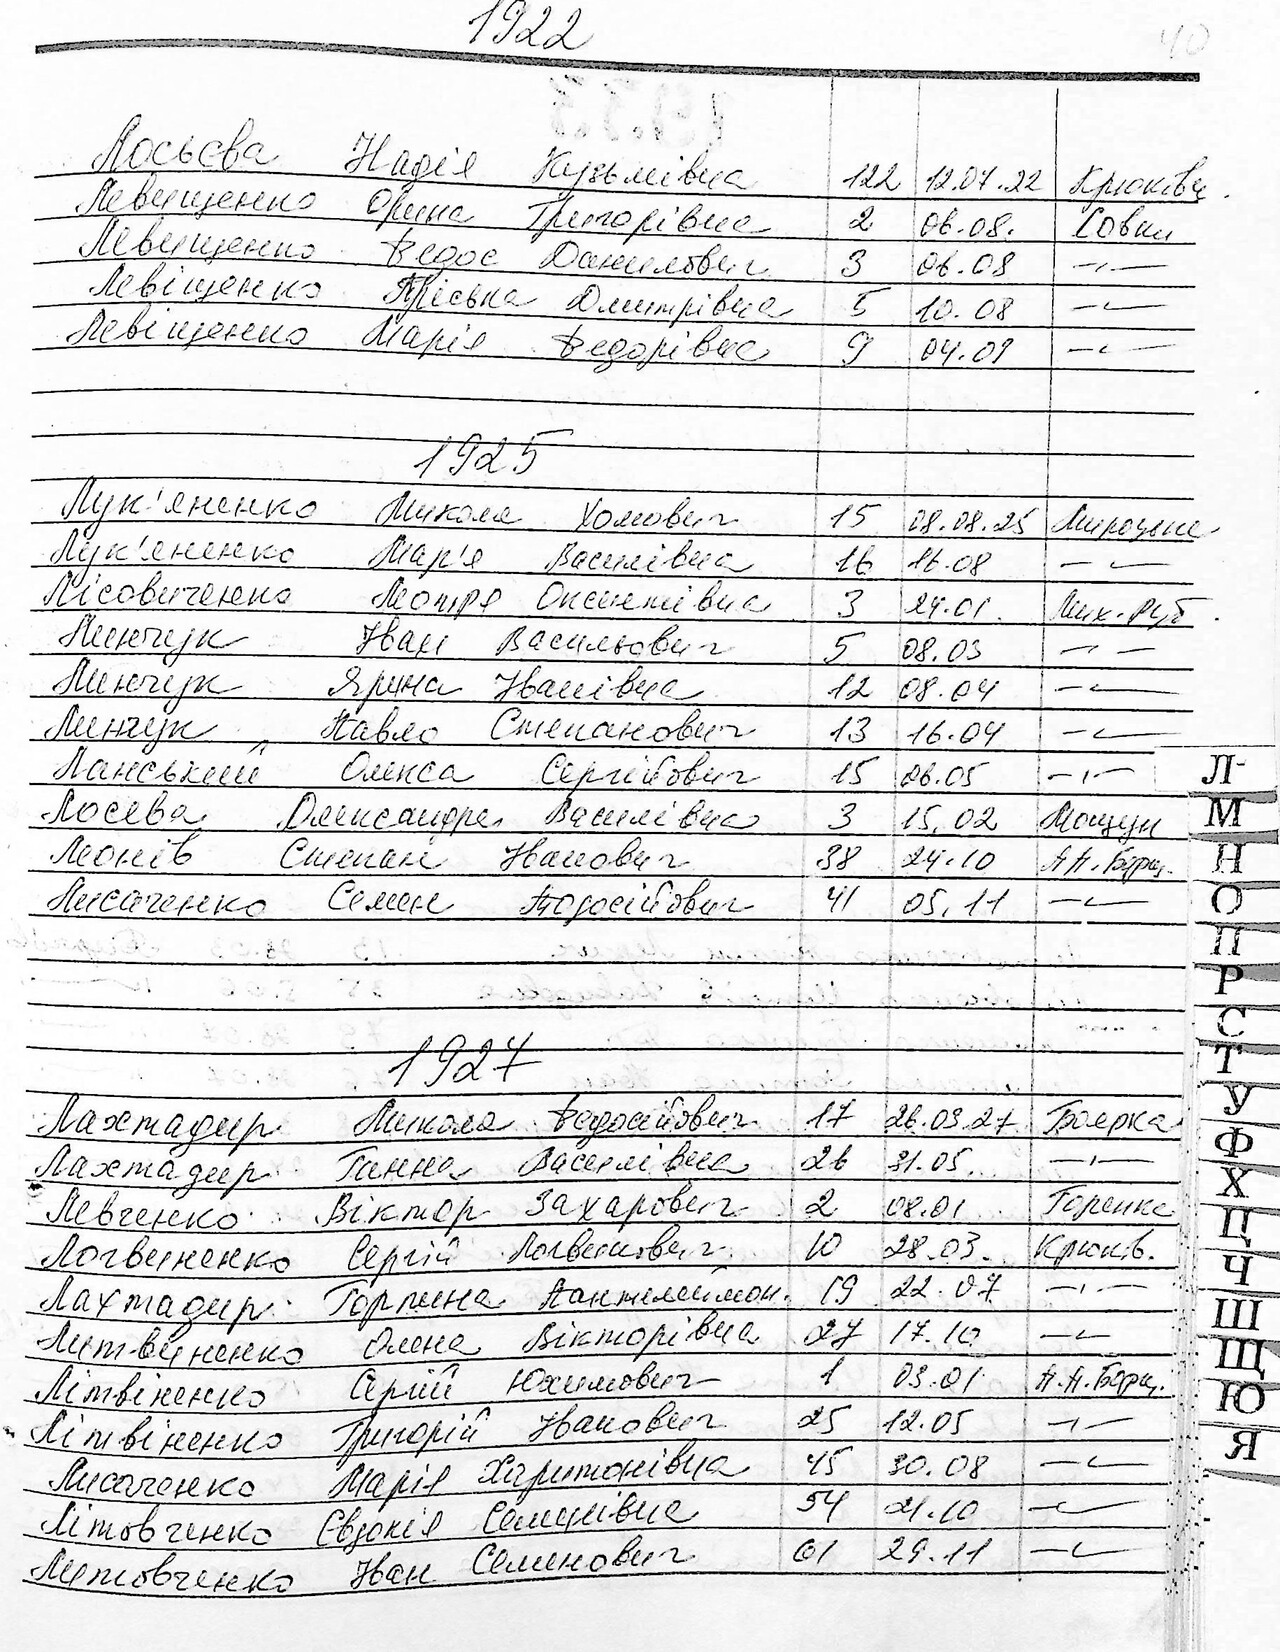 1922
40
Лосьєва Надія Кузьмівна 122 12.07.22 Крюківщ.
Левищенко Орина Григорівна 2 06.08. Совки
Левищенко Федос Данилович 3 06.08 —"—
Левіщенко Пріська Дмитрівна 5 10.08 —"—
Левіщенко Марія Федорівна 9 04.09 —"—
1925
Лук'яненко Микола Хомович 15 08.08.25 Мироцьке
Лук'яненко Мар'я Василівна 16 16.08 —"—
Лісовиченко Мотря Оксентівна 3 24.01. Мих-Руб.
Минчук Іван Васильович 5 08.03 —"—
Линчук Ярина Іванівна 12 08.04 —"—
Линчук Павло Степанович 13 16.04 —"—
Ланський Олекса Сергійович 15 26.05 —"—
Лосева Олександра Василівна 3 15.02 Мощун
Леонів Степан Іванович 38 24.10 П.П.Борщ.
Лисаченко Семен Тодосійович 41 05.11 —"—
1927
Лахтадир Микола Федосійович 17 26.03.27 Боярка
Лахтадир Ганна Василівна 26 31.05. —"—
Левченко Віктор Захарович 2 08.01 Горенка
Логвиненко Сергій Логвинович 10 28.03. Крюків.
Лахтадир Горпина Пантилеймон. 19 22.07 —"—
Литвиненко Олена Вікторівна 27 17.10 —"—
Літвіненко Сергій Юхимович 1 03.01 П.П.Борщ.
Літвіненко Григорій Іванович 25 12.05 —"—
Лисаченко Марія Харитонівна 45 30.08 —"—
Літовченко Євдокія Семенівна 54 21.10 —"—
Литовченко Іван Семенович 61 29.11 —"—
Л
М
Н
О
П
Р
С
Т
У
Ф
Х
Ц
Ч
Ш
Щ
Ю
Я